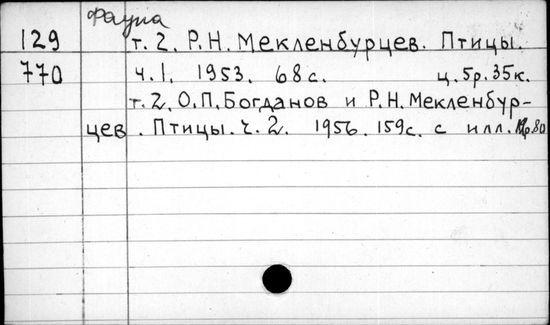 Фауна
129 т. 2. Р.Н. Мекленбурцев. Птицы.
770 ч.1. 1953. 68с. ц.5р.35к.
т.2. О.П. Богданов и Р.Н. Мекленбур-
цев. Птицы. ч.2. 1956. 159с. с илл.